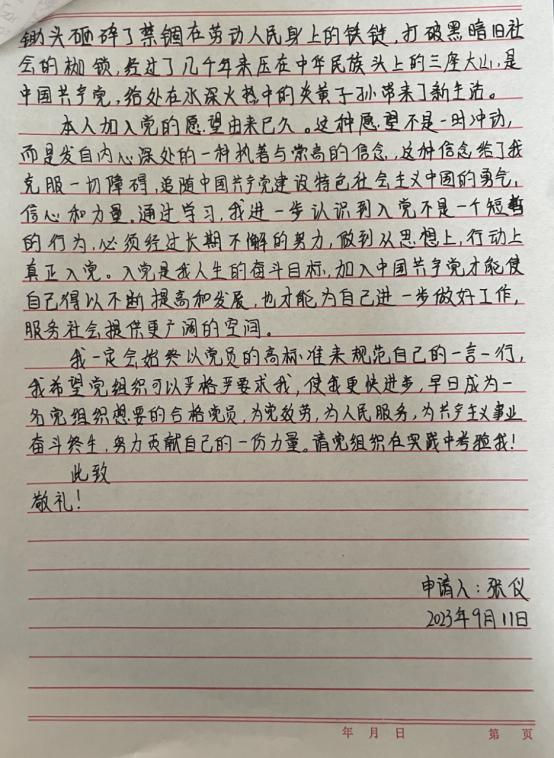 锄头砸碎了禁锢在劳动人民身上的铁链，打破黑暗旧社
会的枷锁，经过了几千年来压在中华民族头上的三座大山，是
中国共产党，给处在水深火热中的炎黄子孙带来了新生活。
本人加入党的愿望由来已久。这种愿望不是一时冲动，
而是发自内心深处的一种执着与崇高的信念，这种信念给了我
克服一切障碍，追随中国共产党建设特色社会主义中国的勇气，
信心和力量。通过学习，我进一步认识到入党不是一个短暂
的行为，必须经过长期不懈的努力，做到从思想上，行动上
真正入党。入党是我人生的奋斗目标，加入中国共产党才能使
自己得以不断提高和发展，也才能为自己进一步做好工作，
服务社会提供更广阔的空间。
我一定会始终以党员的高标准来规范自己的一言一行，
我希望党组织可以严格严要求我，使我更快进步，早日成为一
名党组织想要的合格党员，为党效劳，为人民服务，为共产主义事业
奋斗终生，努力贡献自己的一份力量。请党组织在实践中考验我！
此致
敬礼！
申请人：张仪
2023年9月11日
年 月 日 第 页